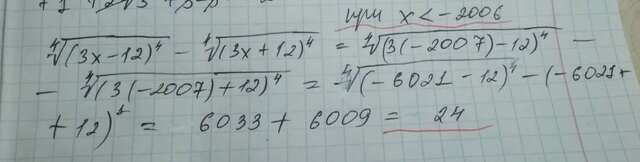 при x < -2006
⁴√(3x-12)⁴ - ⁴√(3x+12)⁴ = ⁴√(3(-2007)-12)⁴ -
- ⁴√(3(-2007)+12)⁴ = ⁴√(-6021-12)⁴ - (-6021+
+12)⁴ = 6033 + 6009 = 24